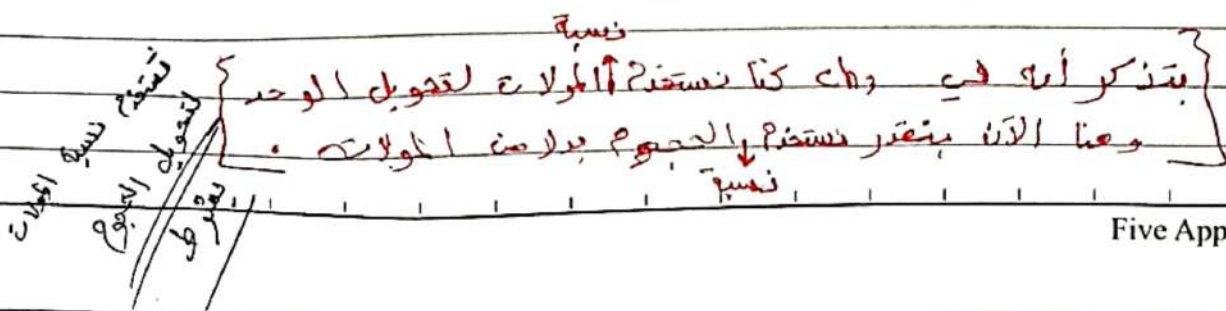 نسبة
بتذكر أنه في ch كنا نستخدم المولات لتحويل الوحد
وهنا الآن بنقدر نستخدم الحجوم بدلا من المولات .
نسبة
نستخدم نسبة المولات
لتحويل الحجوم
بشرط
Five App